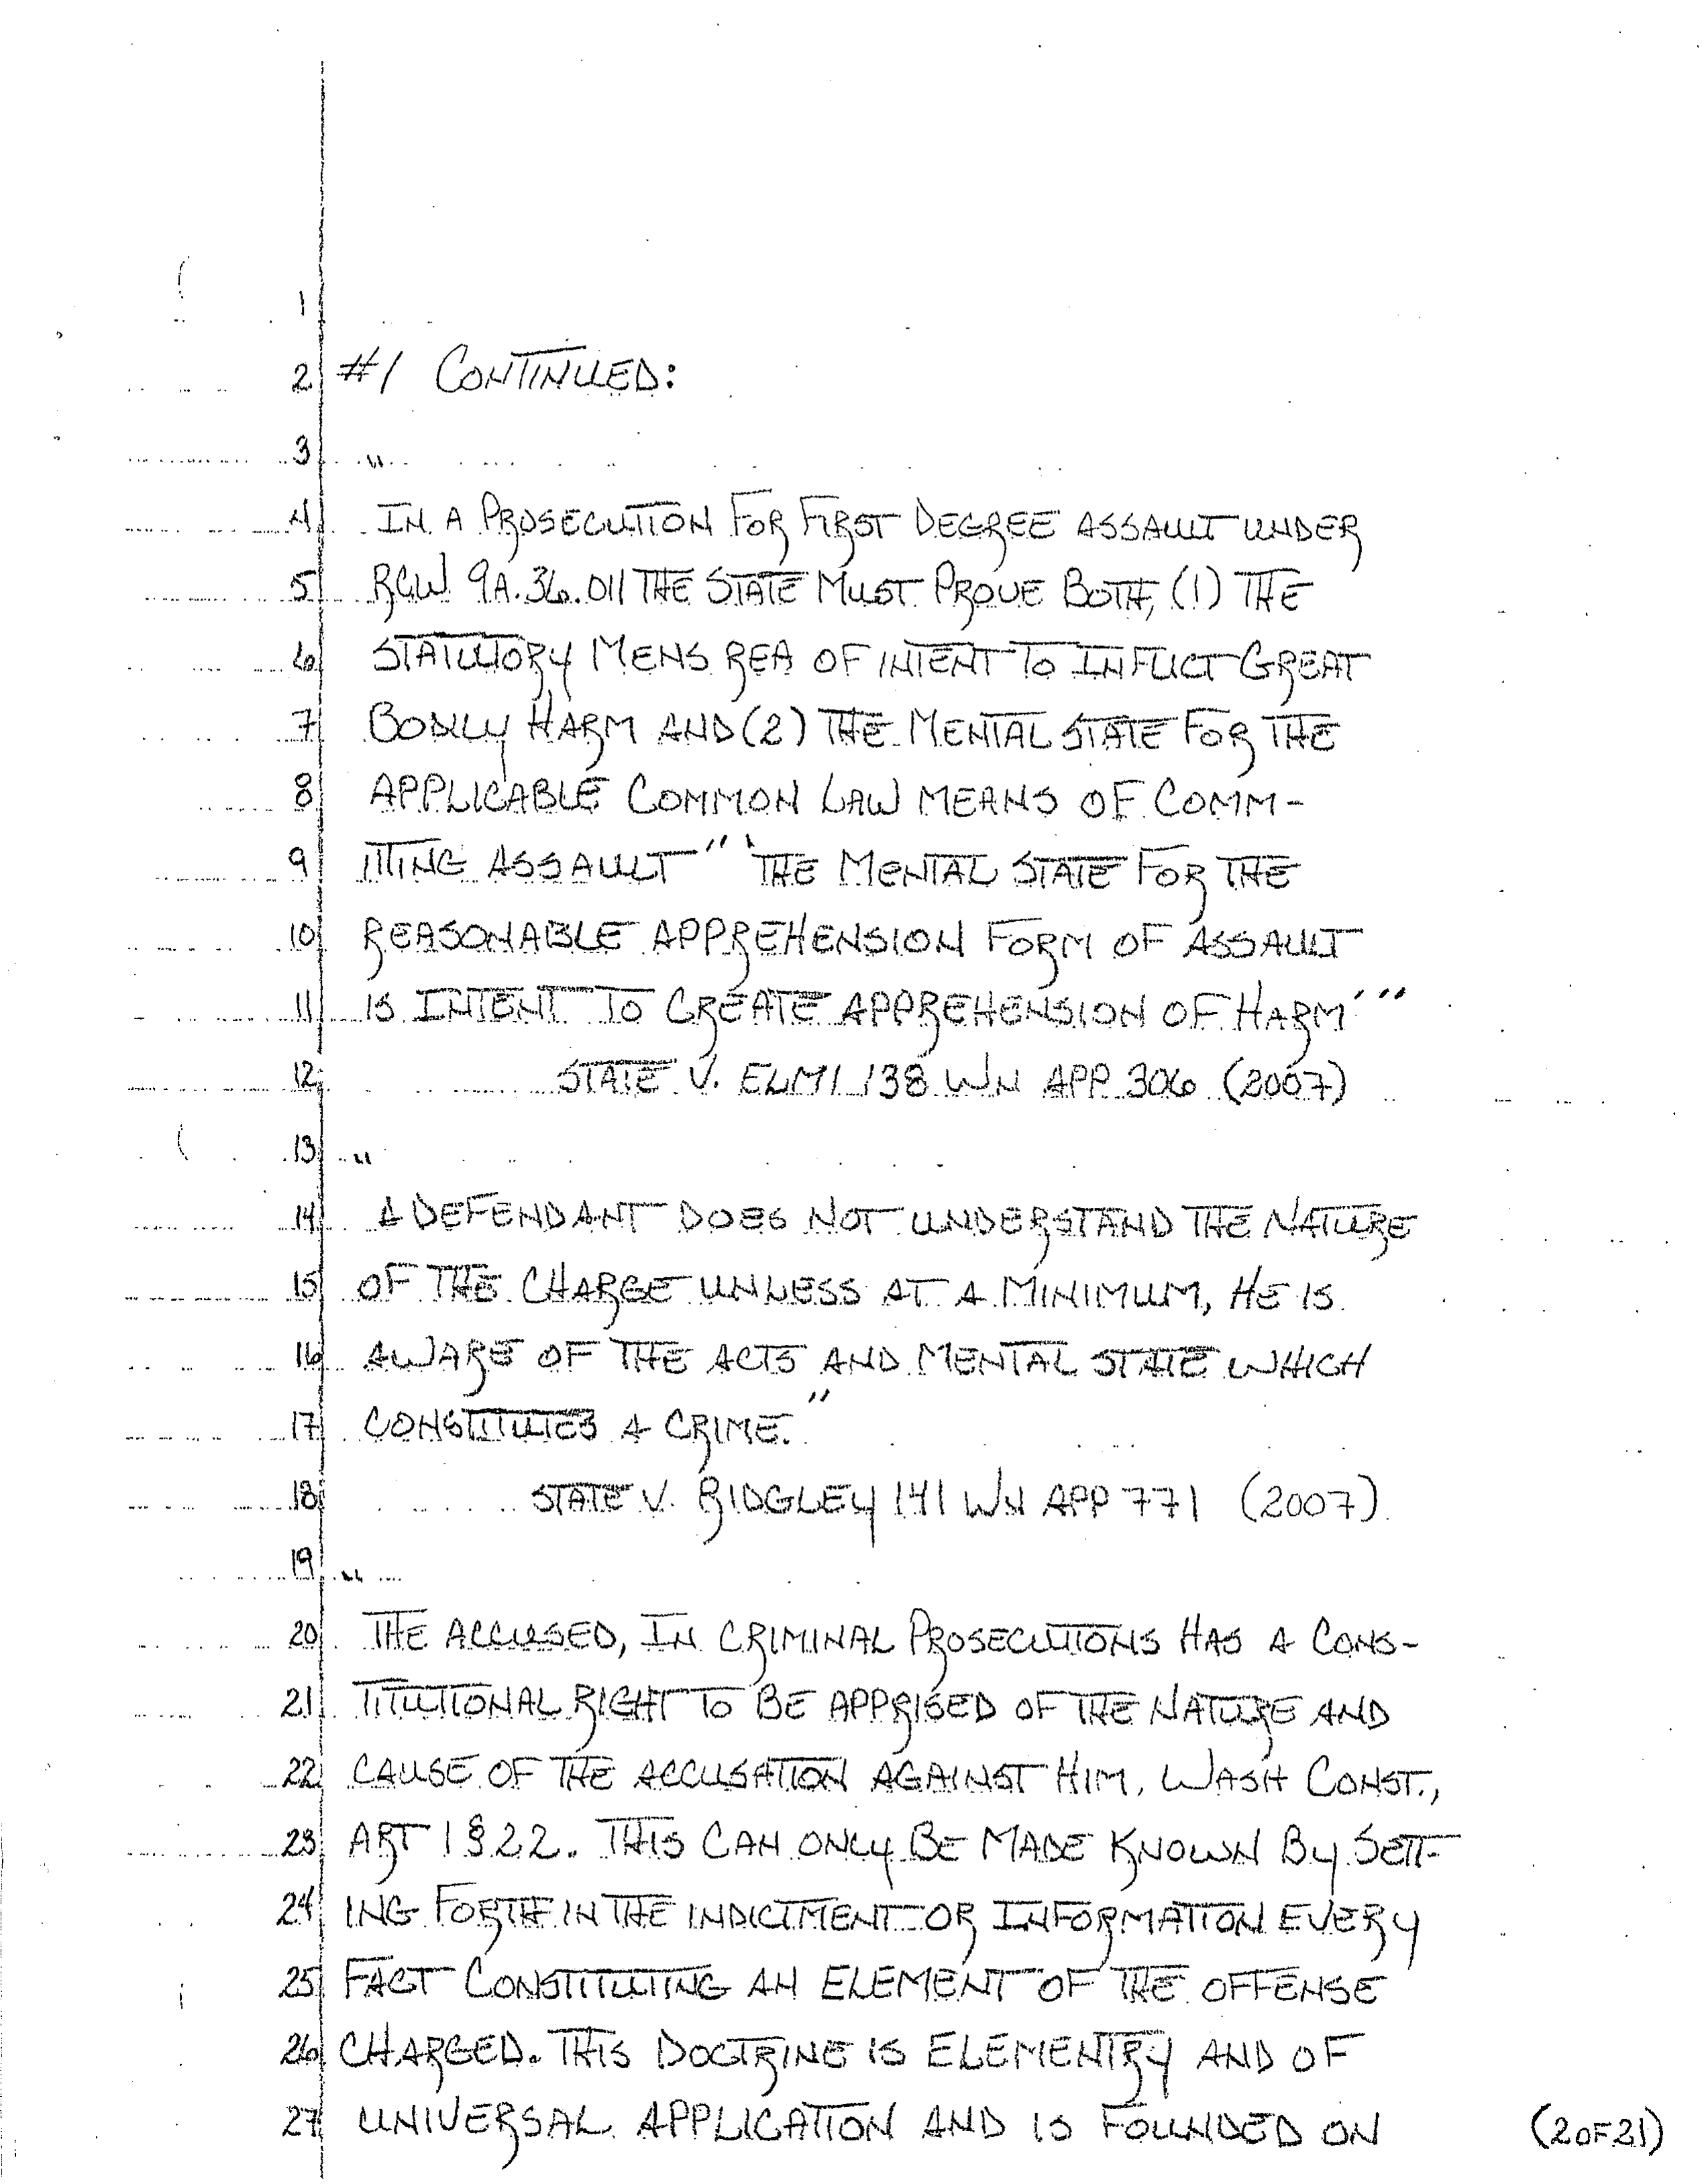 1
2 #1 CONTINUED:
3 "
4 IN A PROSECUTION FOR FIRST DEGREE ASSAULT UNDER
5 RCW 9A.36.011 THE STATE MUST PROVE BOTH, (1) THE
6 STATUTORY MENS REA OF INTENT TO INFLICT GREAT
7 BODILY HARM AND (2) THE MENTAL STATE FOR THE
8 APPLICABLE COMMON LAW MEANS OF COMM-
9 ITTING ASSAULT" 'THE MENTAL STATE FOR THE
10 REASONABLE APPREHENSION FORM OF ASSAULT
11 IS INTENT TO CREATE APPREHENSION OF HARM'"
12 STATE V. ELMI 138 WN APP 306 (2007)
13 "
14 A DEFENDANT DOES NOT UNDERSTAND THE NATURE
15 OF THE CHARGE UNLESS AT A MINIMUM, HE IS
16 AWARE OF THE ACTS AND MENTAL STATE WHICH
17 CONSTITUTES A CRIME."
18 STATE V. RIDGLEY 141 WN APP 771 (2007)
19 "
20 THE ACCUSED, IN CRIMINAL PROSECUTIONS HAS A CONS-
21 TITUTIONAL RIGHT TO BE APPRISED OF THE NATURE AND
22 CAUSE OF THE ACCUSATION AGAINST HIM, WASH CONST.,
23 ART 1 § 22. THIS CAN ONLY BE MADE KNOWN BY SETT-
24 ING FORTH IN THE INDICTMENT OR INFORMATION EVERY
25 FACT CONSTITUTING AN ELEMENT OF THE OFFENSE
26 CHARGED. THIS DOCTRINE IS ELEMENTRY AND OF
27 UNIVERSAL APPLICATION AND IS FOUNDED ON
(2 OF 21)